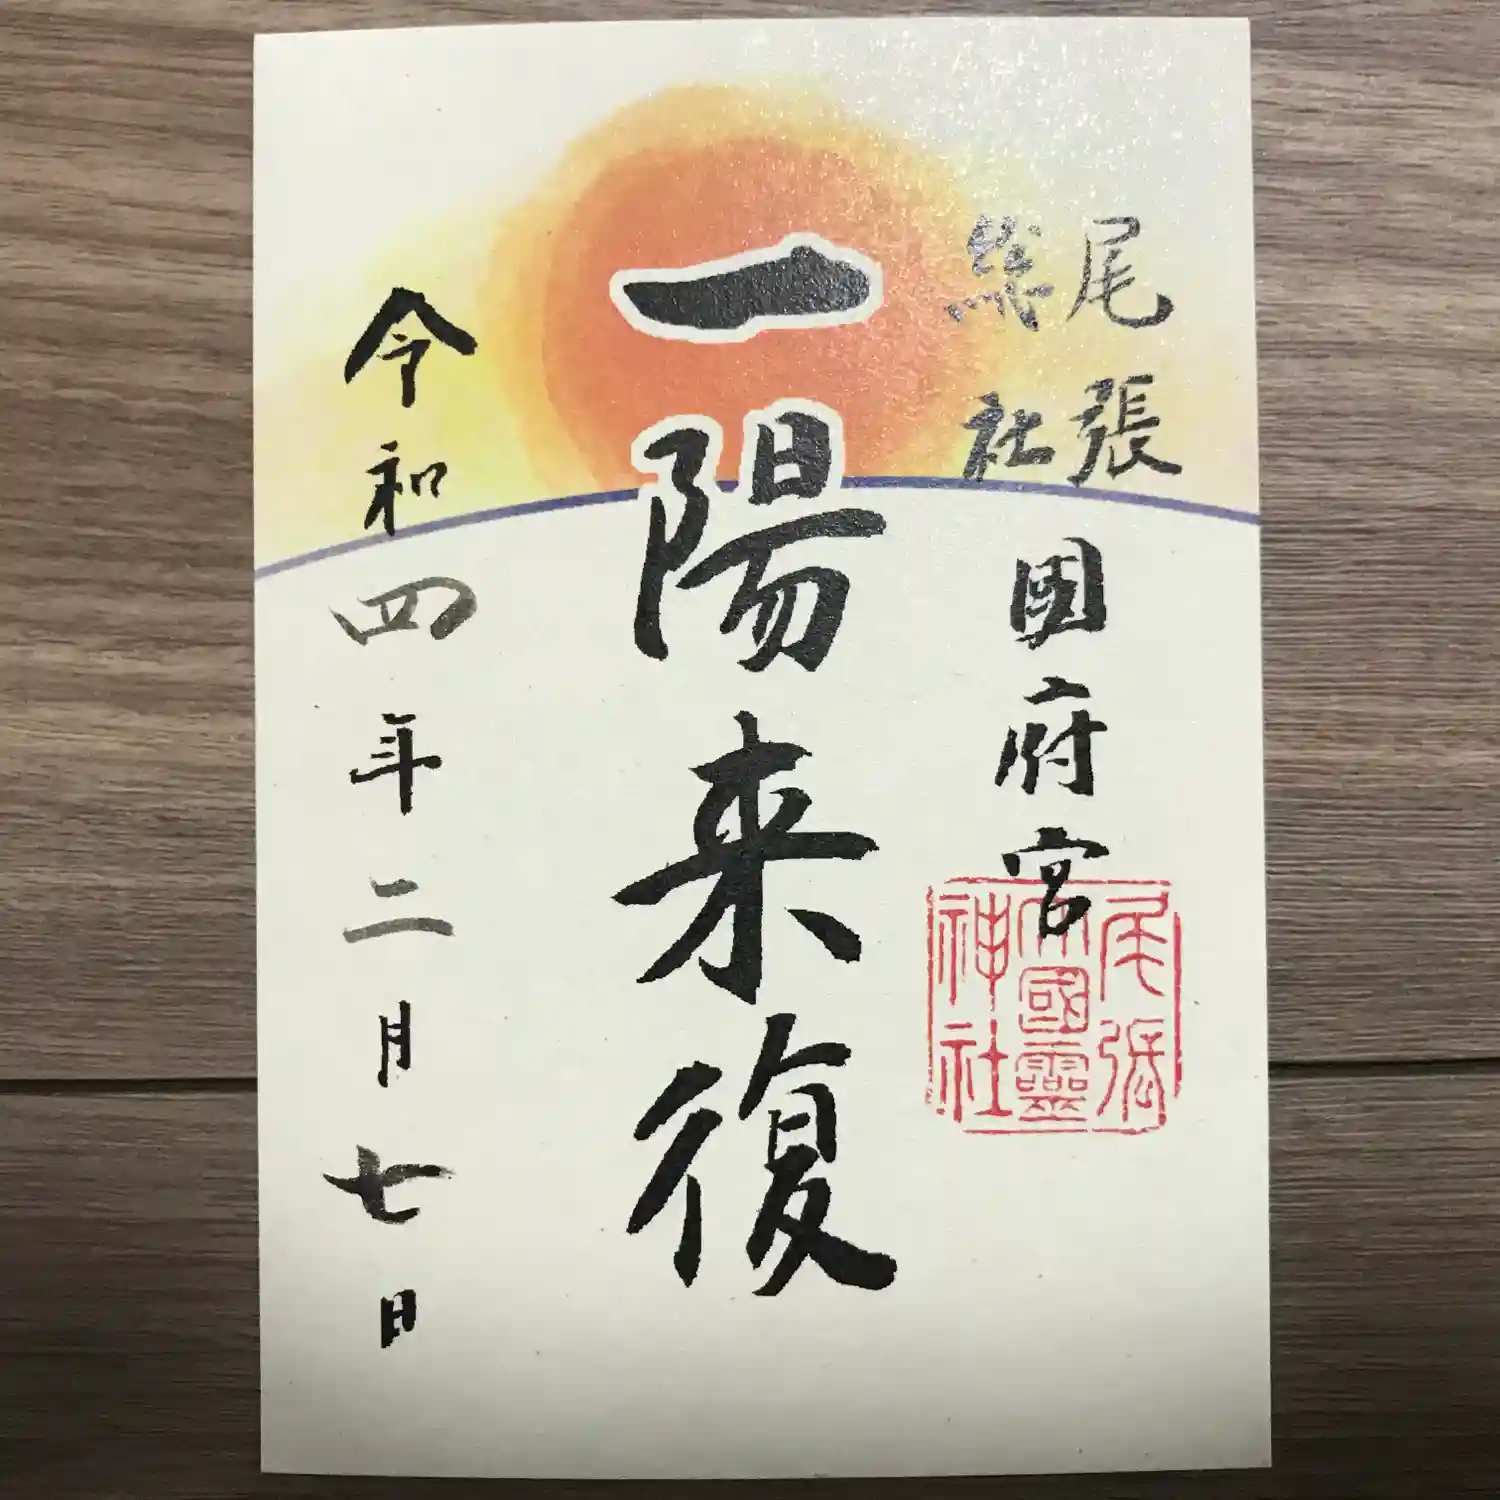 尾張
総社
國府宮
尾張
大國霊
神社
一陽来復
令和四年二月七日